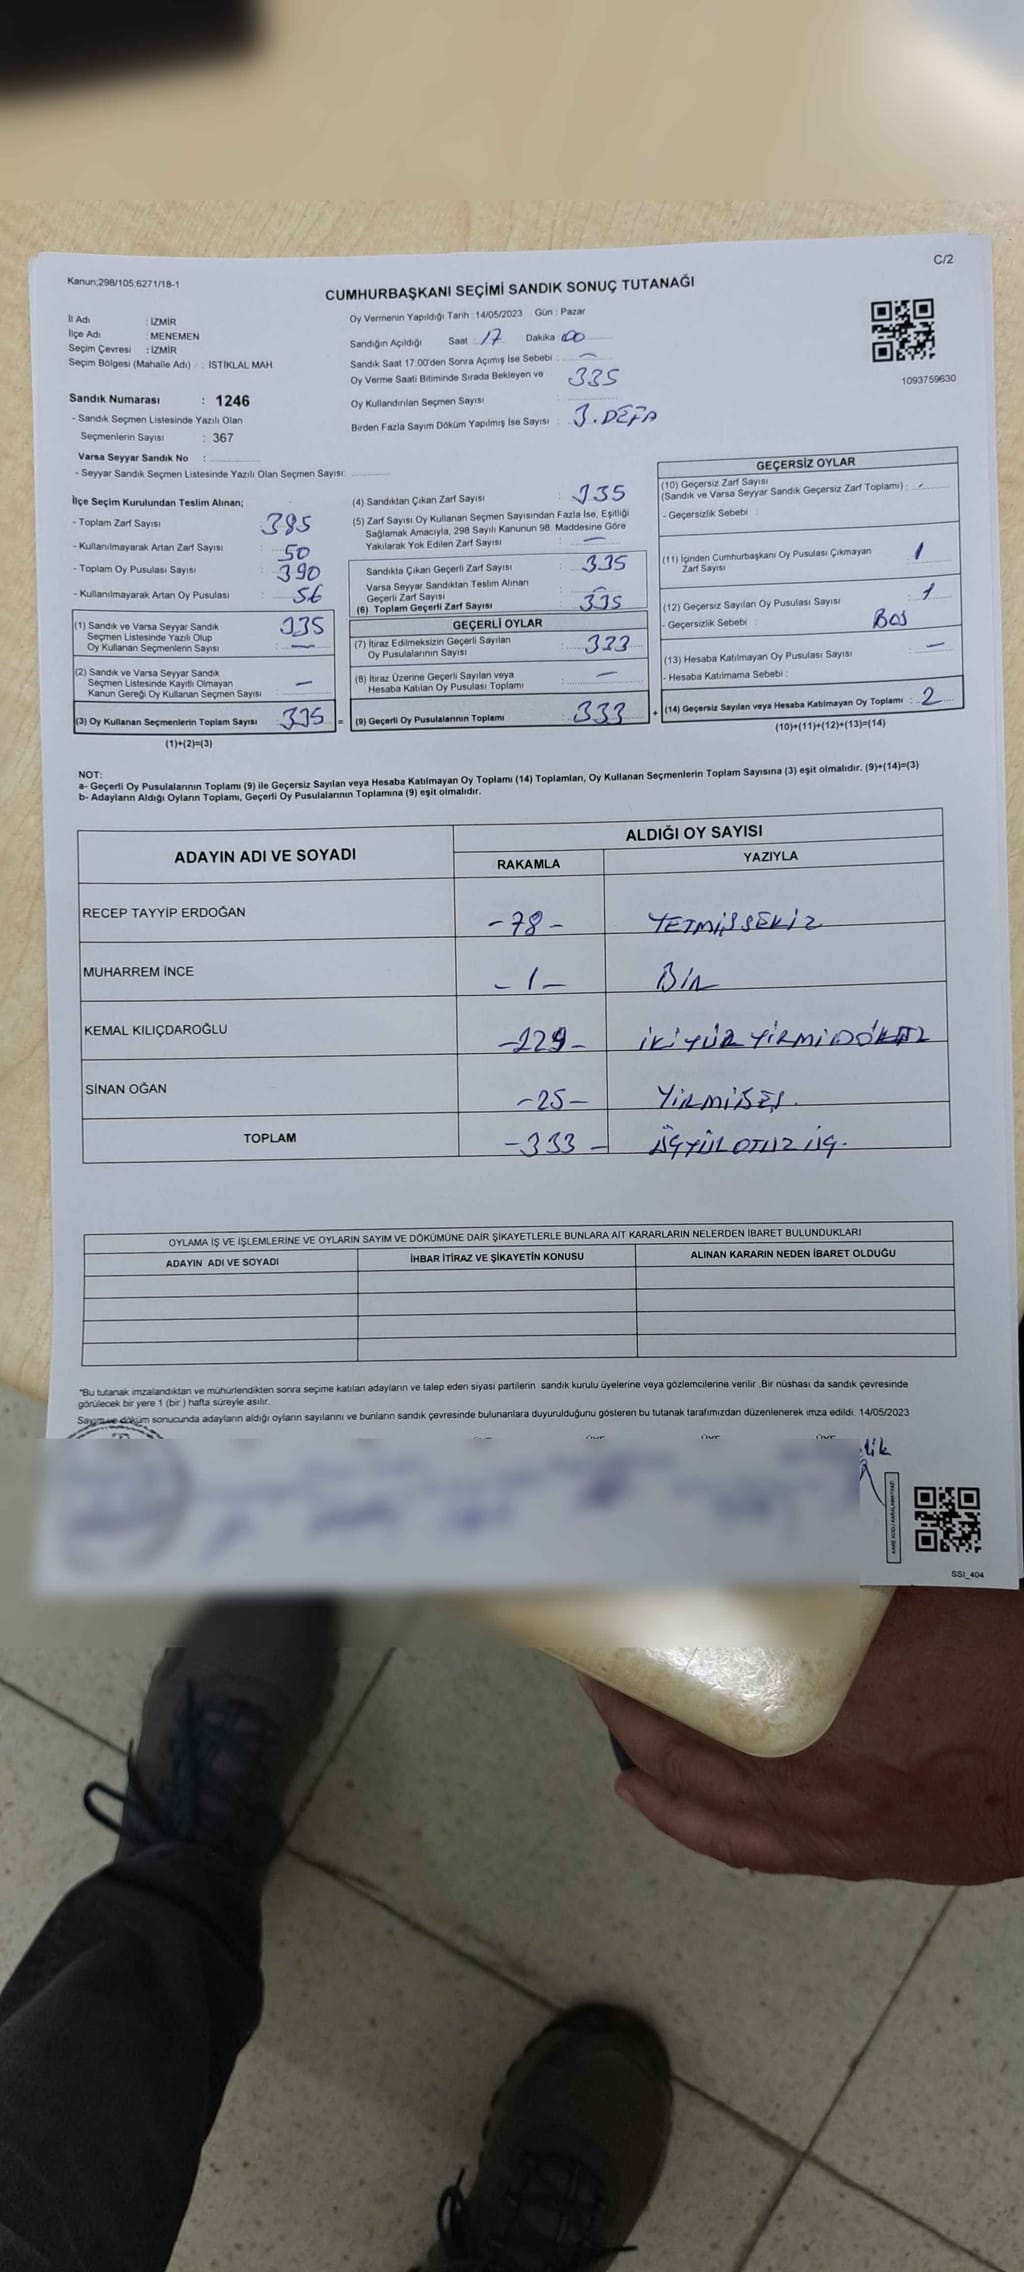 C/2
Kanun;298/105;6271/18-1
CUMHURBAŞKANI SEÇİMİ SANDIK SONUÇ TUTANAĞI
İl Adı : İZMİR
İlçe Adı : MENEMEN
Seçim Çevresi : İZMİR
Seçim Bölgesi (Mahalle Adı) : İSTİKLAL MAH
Sandık Numarası : 1246
- Sandık Seçmen Listesinde Yazılı Olan
Seçmenlerin Sayısı : 367
Varsa Seyyar Sandık No :
- Seyyar Sandık Seçmen Listesinde Yazılı Olan Seçmen Sayısı:
Oy Vermenin Yapıldığı Tarih : 14/05/2023 Gün : Pazar
Sandığın Açıldığı Saat : 17 Dakika : 00
Sandık Saat 17:00'den Sonra Açımış İse Sebebi : —
Oy Verme Saati Bitiminde Sırada Bekleyen ve 335
Oy Kullandırılan Seçmen Sayısı :
Birden Fazla Sayım Döküm Yapılmış İse Sayısı : 3. DEFA
1093759630
İlçe Seçim Kurulundan Teslim Alınan;
- Toplam Zarf Sayısı : 385
- Kullanılmayarak Artan Zarf Sayısı : 50
- Toplam Oy Pusulası Sayısı : 390
- Kullanılmayarak Artan Oy Pusulası : 56
(1) Sandık ve Varsa Seyyar Sandık 335
Seçmen Listesinde Yazılı Olup
Oy Kullanan Seçmenlerin Sayısı : —
(2) Sandık ve Varsa Seyyar Sandık
Seçmen Listesinde Kayıtlı Olmayan
Kanun Gereği Oy Kullanan Seçmen Sayısı : —
(3) Oy Kullanan Seçmenlerin Toplam Sayısı : 335 =
(1)+(2)=(3)
(4) Sandıktan Çıkan Zarf Sayısı : 335
(5) Zarf Sayısı Oy Kullanan Seçmen Sayısından Fazla İse, Eşitliği
Sağlamak Amacıyla, 298 Sayılı Kanunun 98. Maddesine Göre
Yakılarak Yok Edilen Zarf Sayısı : —
Sandıkta Çıkan Geçerli Zarf Sayısı : 335
Varsa Seyyar Sandıktan Teslim Alınan
Geçerli Zarf Sayısı : —
(6) Toplam Geçerli Zarf Sayısı : 335
GEÇERLİ OYLAR
(7) İtiraz Edilmeksizin Geçerli Sayılan
Oy Pusulalarının Sayısı : 333
(8) İtiraz Üzerine Geçerli Sayılan veya
Hesaba Katılan Oy Pusulası Toplamı : —
(9) Geçerli Oy Pusulalarının Toplamı : 333 +
GEÇERSİZ OYLAR
(10) Geçersiz Zarf Sayısı
(Sandık ve Varsa Seyyar Sandık Geçersiz Zarf Toplamı) :
- Geçersizlik Sebebi :
(11) İçinden Cumhurbaşkanı Oy Pusulası Çıkmayan
Zarf Sayısı : 1
(12) Geçersiz Sayılan Oy Pusulası Sayısı : 1
- Geçersizlik Sebebi : BOŞ
(13) Hesaba Katılmayan Oy Pusulası Sayısı : —
- Hesaba Katılmama Sebebi :
(14) Geçersiz Sayılan veya Hesaba Katılmayan Oy Toplamı : 2
(10)+(11)+(12)+(13)=(14)
NOT:
a- Geçerli Oy Pusulalarının Toplamı (9) ile Geçersiz Sayılan veya Hesaba Katılmayan Oy Toplamı (14) Toplamları, Oy Kullanan Seçmenlerin Toplam Sayısına (3) eşit olmalıdır. (9)+(14)=(3)
b- Adayların Aldığı Oyların Toplamı, Geçerli Oy Pusulalarının Toplamına (9) eşit olmalıdır.
ADAYIN ADI VE SOYADI ALDIĞI OY SAYISI
RAKAMLA YAZIYLA
RECEP TAYYİP ERDOĞAN -78- YETMİŞSEKİZ
MUHARREM İNCE -1- BİR
KEMAL KILIÇDAROĞLU -229- İKİYÜZ YİRMİDOKUZ
SİNAN OĞAN -25- YİRMİBEŞ.
TOPLAM -333- ÜÇYÜZ OTUZ ÜÇ.
OYLAMA İŞ VE İŞLEMLERİNE VE OYLARIN SAYIM VE DÖKÜMÜNE DAİR ŞİKAYETLERLE BUNLARA AİT KARARLARIN NELERDEN İBARET BULUNDUKLARI
ADAYIN ADI VE SOYADI İHBAR İTİRAZ VE ŞİKAYETİN KONUSU ALINAN KARARIN NEDEN İBARET OLDUĞU
*Bu tutanak imzalandıktan ve mühürlendikten sonra seçime katılan adayların ve talep eden siyasi partilerin sandık kurulu üyelerine veya gözlemcilerine verilir. Bir nüshası da sandık çevresinde
görülecek bir yere 1 (bir) hafta süreyle asılır.
Sayım ve döküm sonucunda adayların aldığı oyların sayılarını ve bunların sandık çevresinde bulunanlara duyurulduğunu gösteren bu tutanak tarafımızdan düzenlenerek imza edildi. 14/05/2023
SSI_404